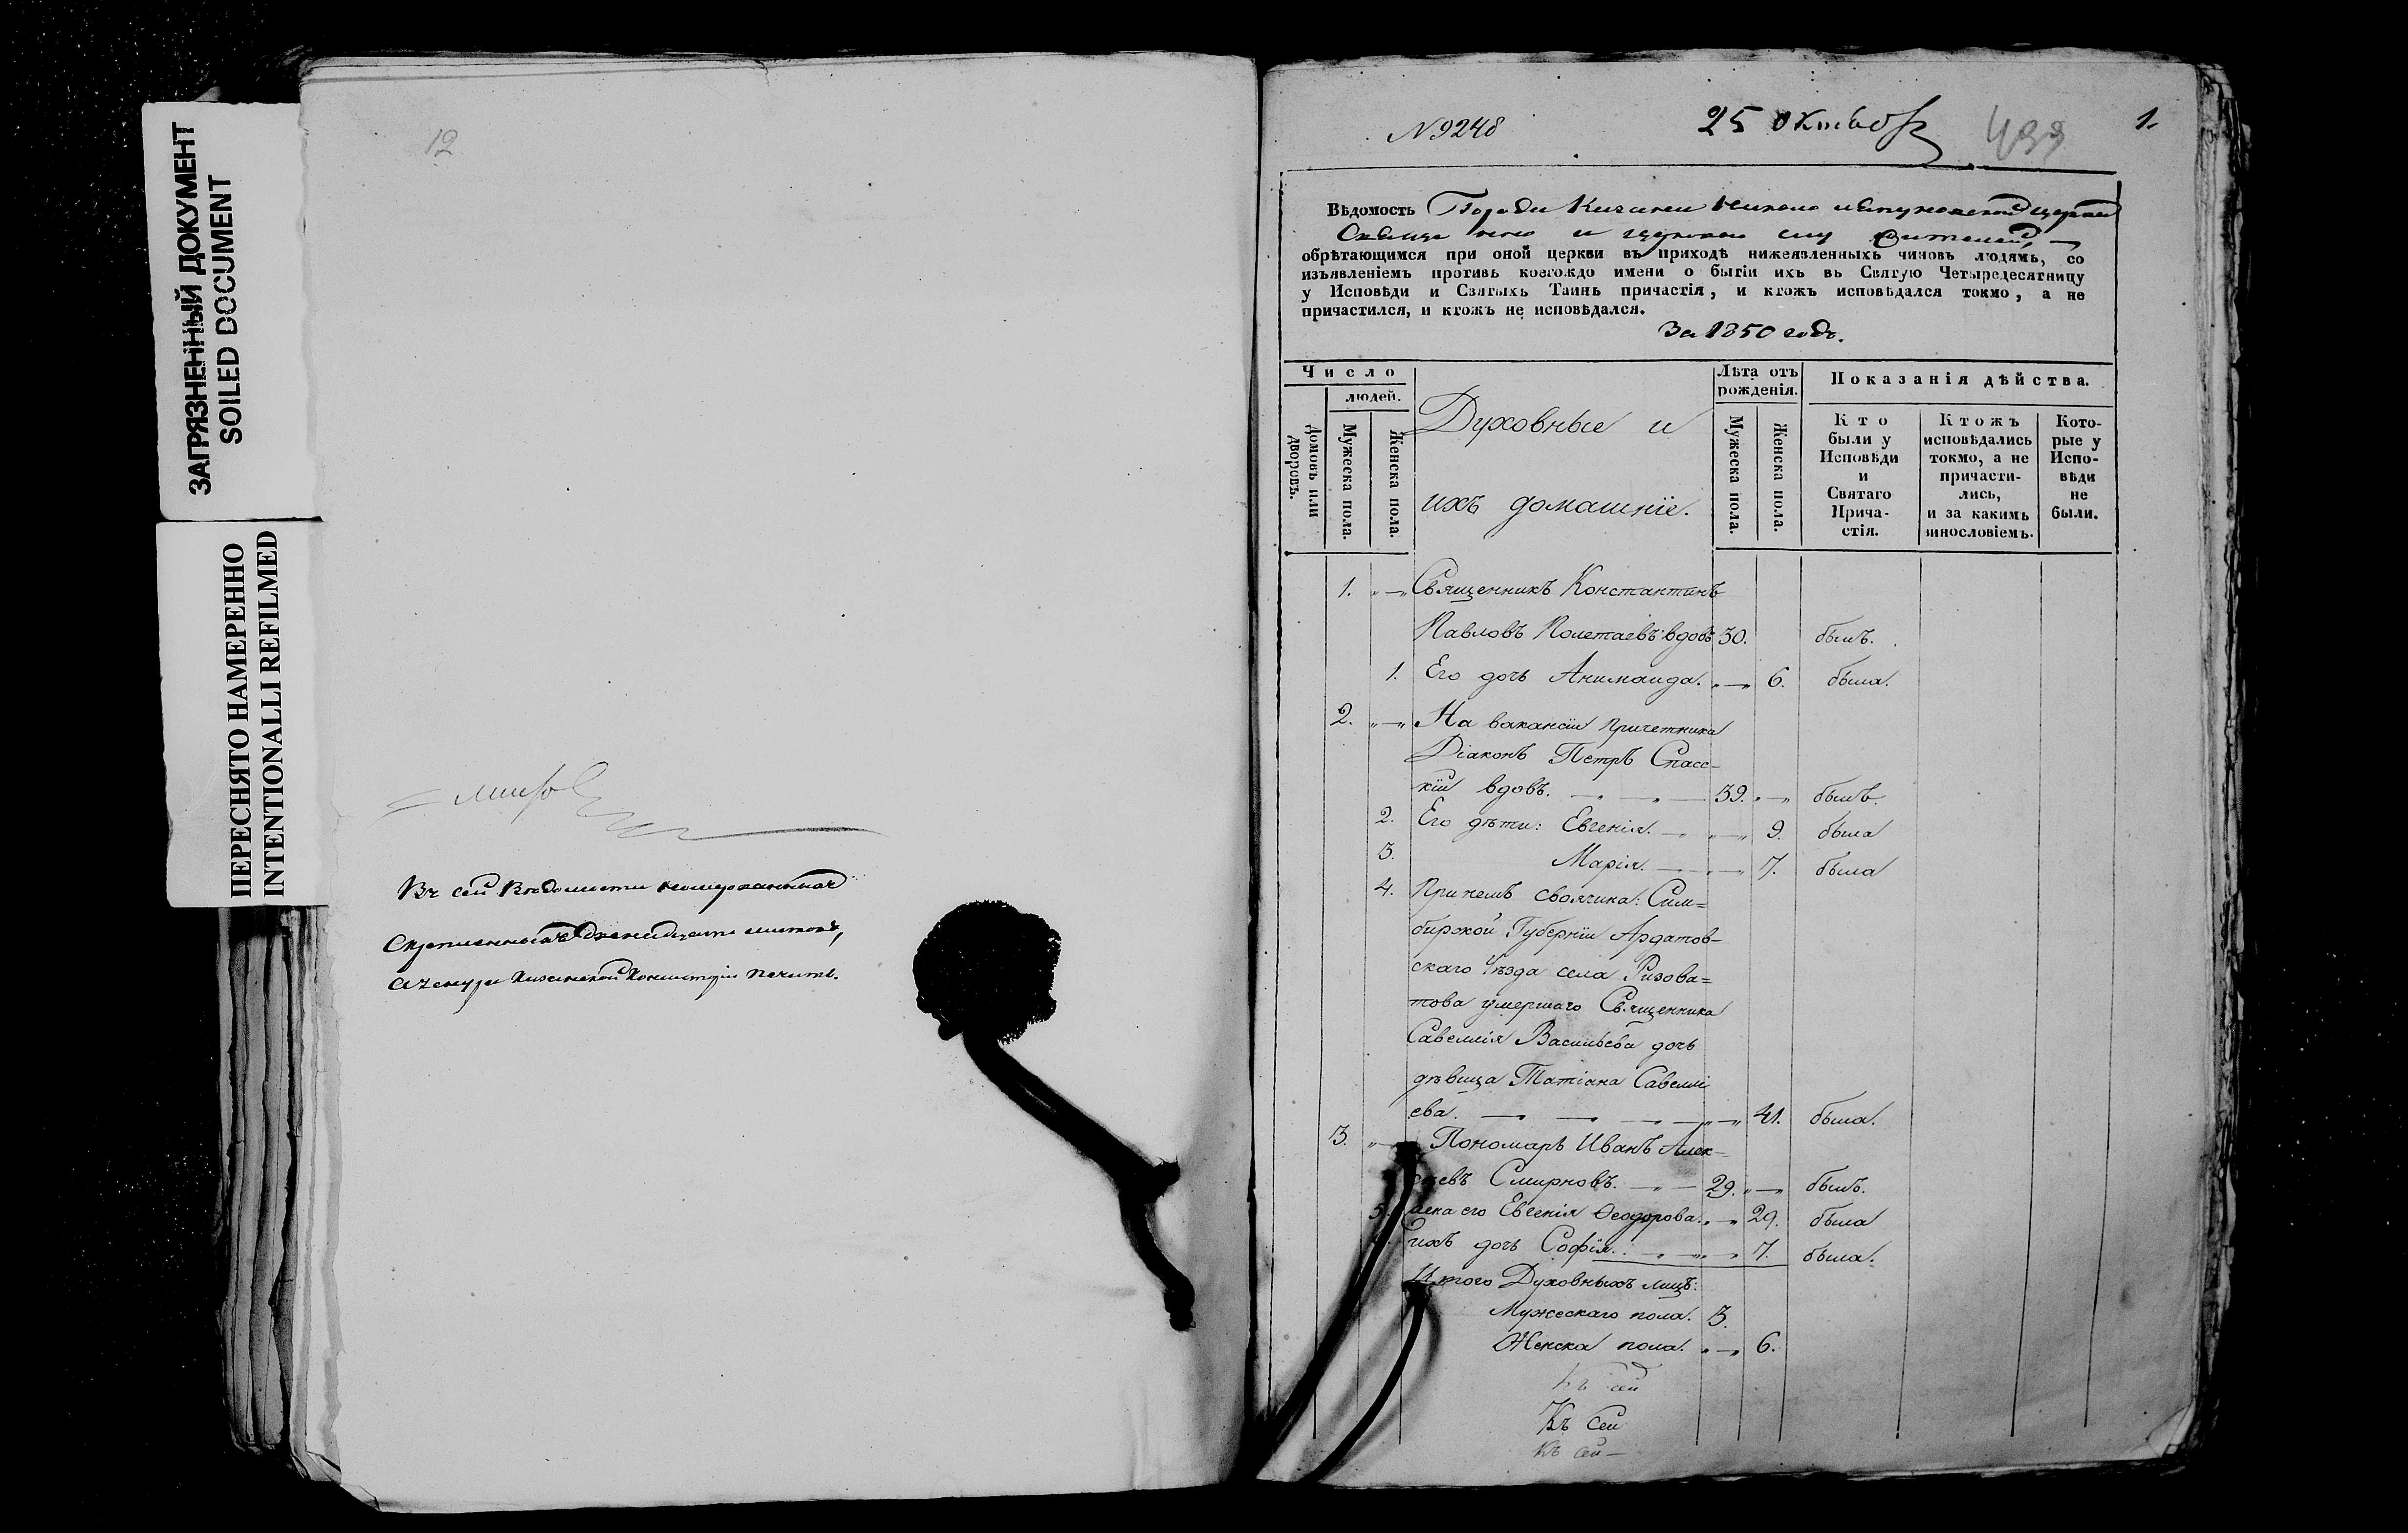 ЗАГРЯЗНЕННЫЙ ДОКУМЕНТ
SOILED DOCUMENT
ПЕРЕСНЯТО НАМЕРЕННО
INTENTIONALLI REFILMED
12
Въ сей Вѣдомости
листовъ,
Консисторіи печать.
N 9248
25
1.
Вѣдомость Города
и
обрѣтающимся при оной церкви въ приходѣ нижеявленныхъ чиновъ людямъ, со
изъявленіемъ противъ коегождо имени о бытіи ихъ въ Святую Четыредесятницу
у Исповѣди и Святыхъ Таинъ причастія, и ктожъ исповѣдался токмо, а не
причастился, и ктожъ не исповѣдался.
За 1850 годъ.
Число
людей.
Домовъ или дворовъ.
Мужеска пола.
Женска пола.
Духовные и
ихъ домашніе.
Лѣта отъ рожденія.
Мужеска пола.
Женска пола.
Показанія дѣйства.
Кто были у Исповѣди и Святаго Причастія.
Ктожъ исповѣдались токмо, а не причастились, и за какимъ винословіемъ.
Которые у Исповѣди не были.
1. Священникъ Константинъ
Павловъ Полетаевъ вдовъ 30. былъ.
1. Его дочь Анимаида. 6. была.
2. На вакансіи причетника
Діаконъ Петръ Спасс-
кій вдовъ. 39. былъ.
2. Его дѣти: Евгенія. 9. была
3. Марія. 7. была
4. При немъ своячина: Сим=
бирской Губерніи Ардатов-
скаго Уѣзда села Ризова=
това умершаго Священника
Савеллія Васильева дочь
дѣвица Татіана Савелліева. 41. была.
3. Пономарь Иванъ Алек-
сѣевъ Смирновъ. 29. былъ.
5. жена его Евгенія Ѳеодорова. 29. была
ихъ дочь Софія. 7. была.
Итого Духовныхъ лицъ:
Мужескаго пола. 3.
Женска пола. 6.
Къ сей
Къ сей
Къ сей